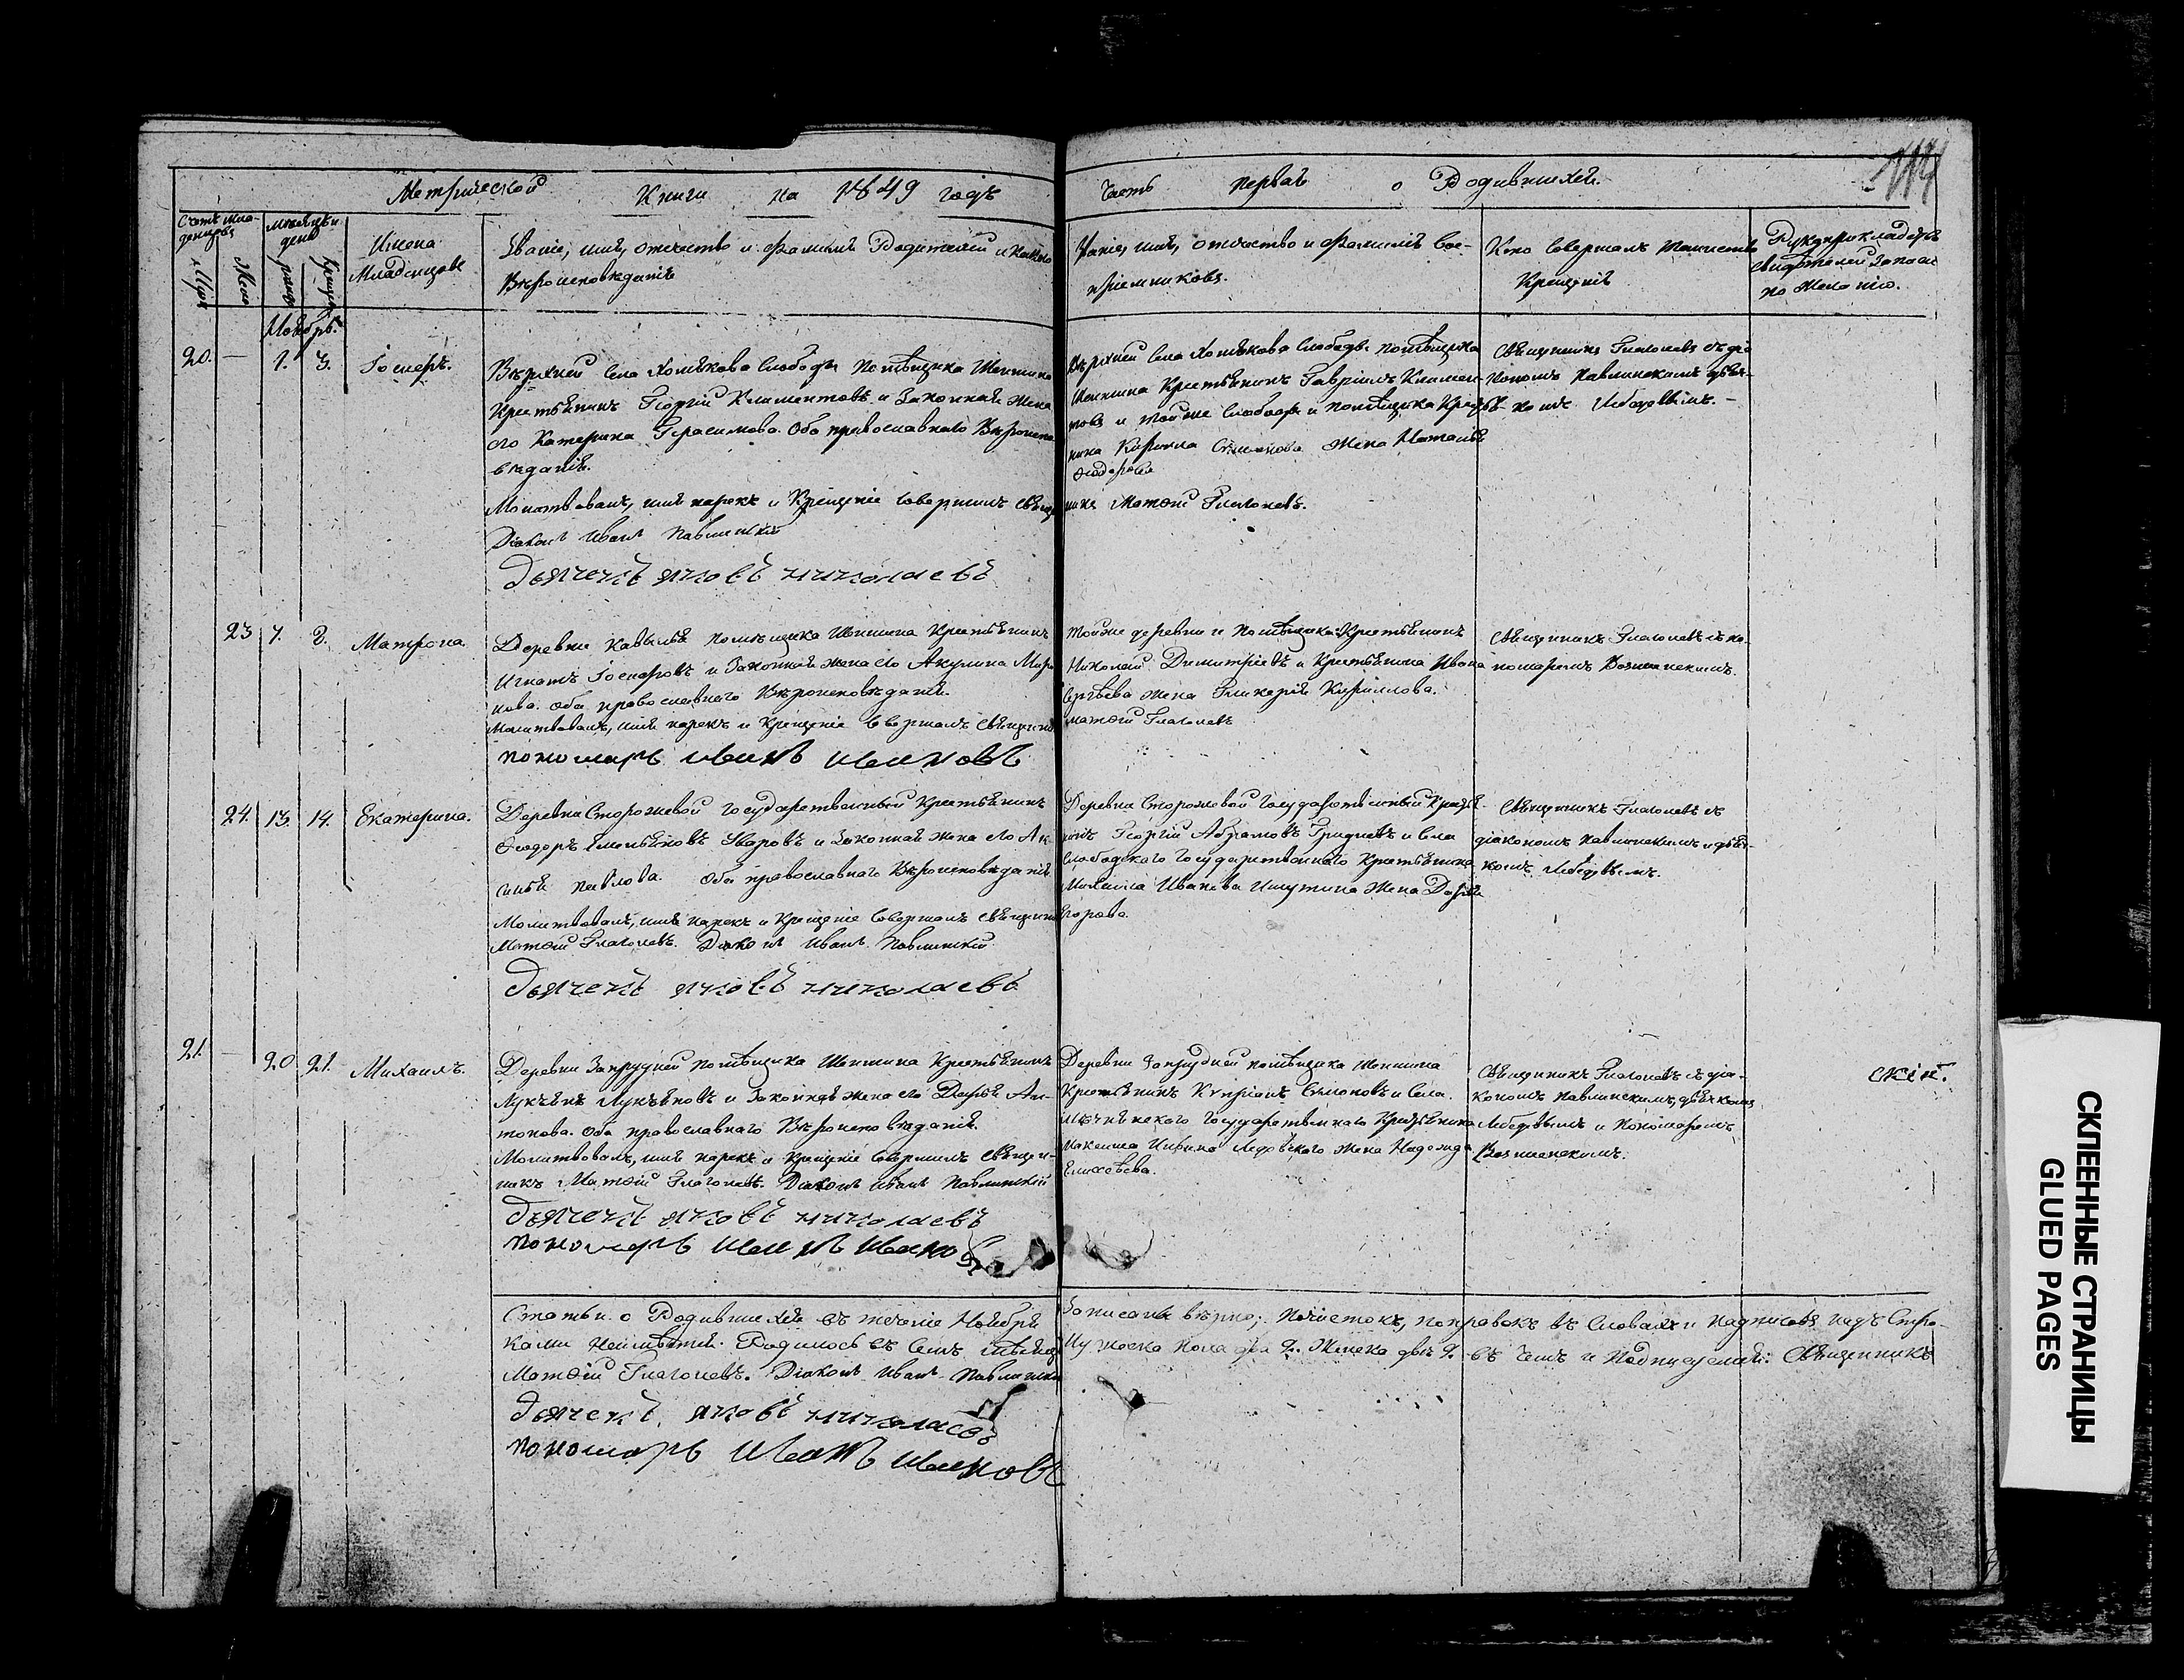 Метрической Книги на 1849 годъ
Часть первая о Родившихся.
114
Счетъ младенцовъ
Муж.
Жен.
Мѣсяцъ и день
рожд.
крещен.
Имена Младенцовъ
Званіе, имя, отечество и фамилія Родителей и какого
Вѣроисповѣданія
Званіе, имя, отечество и фамилія вос-
пріемниковъ.
Кто совершалъ таинство
Крещенія
Рукоприкладство
свидѣтелей записи
по желанію.
Ноябрь.
20. — 1. 3. Госперъ.
Верхней села Хомякова Слободы помѣщика Шеншина
Крестьянинъ Георгій Климентовъ и Законная жена
его Катерина Герасимова. Оба православнаго Вѣроиспо-
вѣданія.
Молитвовалъ, имя нарекъ и Крещеніе совершилъ Свѣщен
Діаконъ Иванъ Павлинскій
Дьячекъ яковъ николаевъ
Верхней села Хомякова Слободы помѣщика
Шеншина Крестьянинъ Гавріилъ Климен-
товъ и тойже Слободы и помѣщика Крестья-
нина Кирилла Семенова жена Наталья
Ѳеодорова
никъ Матѳій Глаголевъ.
Свѣщенникъ Глаголевъ съ діа
кономъ Павлинскимъ дьяч-
комъ Лебедевымъ. –
23 7. 8. Матрона.
Деревни Кавылья помѣщика Шеншина Крестьянинъ
Игнатъ Госперовъ и Законная жена его Акулина Миро
нова. Оба православнаго Вѣроисповѣданія.
Молитвовалъ, имя нарекъ и Крещеніе совершилъ Свѣщенни
пономарь иванъ ивановъ
Тойже деревни и помѣщика Крестьянинъ
Николай Димитріевъ и Крестьянина Ивана
Сергѣева жена Гликерія Кириллова.
Матѳій Глаголевъ
Свѣщенникъ Глаголевъ съ по-
номаремъ Вознесенскимъ.
24. 13. 14. Екатерина.
Деревни Сторожевой Государственный Крестьянинъ
Ѳеодоръ Емельяновъ Уваровъ и Законная жена его Ак-
синья Павлова. Оба православнаго Вѣроисповѣданія
Молитвовалъ, имя нарекъ и Крещеніе Совершилъ Свѣщенни
Матѳій Глаголевъ. Діаконъ Иванъ Павлинскій
Дьячекъ яковъ николаевъ
Деревни Сторожевой Государственный Крестья-
нинъ Георгій Абрамовъ Гридневъ и села
Слободскаго Государственнаго Крестьянина
Михаила Иванова Ишутина жена Дарья
Егорова.
Свѣщенникъ Глаголевъ съ
діакономъ Павлинскимъ и дьяч-
комъ Лебедевымъ.
21. — 20 21. Михаилъ.
Деревни Запрудней помѣщика Шеншина Крестьянинъ
Лукьянъ Лукьяновъ и Законная жена его Дарья Ан-
тонова. Оба православнаго Вѣроисповѣданія.
Молитвовалъ, имя нарекъ и Крещеніе Совершилъ Свѣщен-
никъ Матѳій Глаголевъ. Діаконъ Иванъ Павлинскій
Дьячекъ яковъ николаевъ
пономарь иванъ ивановъ
Деревни Запрудней помѣщика Шеншина
Крестьянинъ Кипріанъ Семеновъ и села
Государственнаго Крестьянина
Максима жена Надежда
Елисѣева.
Свѣщенникъ Глаголевъ съ діа-
кономъ Павлинскимъ, дьячкомъ
Лебедевымъ и Пономаремъ
Вознесенскимъ.
скій.
Статьи о Родившихся въ теченіе Ноября
ками неимѣется. Родилось въ Семъ мѣсяцѣ
Матѳій Глаголевъ. Діаконъ Иванъ Павлински
Дьячекъ яковъ николаевъ
пономарь иванъ ивановъ
Записаны вѣрно; почистокъ, поправокъ въ Словахъ и надписовъ надъ Стро-
Мужеска пола два 2. Женска двѣ 2. въ чемъ и Подписуемся: Свѣщенникъ
СКЛЕЕННЫЕ СТРАНИЦЫ
GLUED PAGES